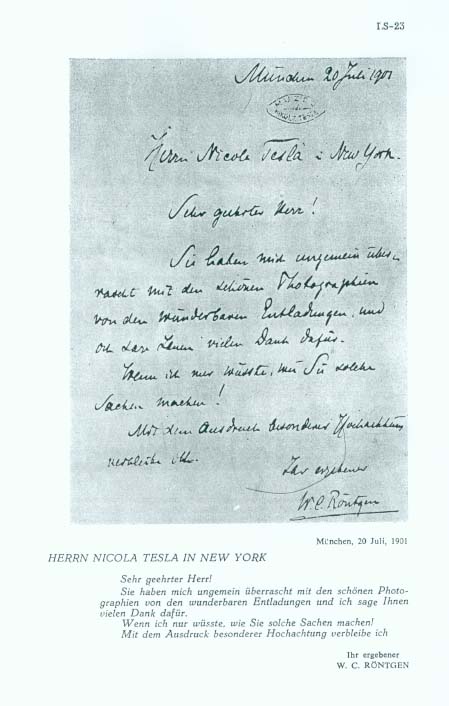 LS-23
München 20 Juli 1901
MUZEJ
NIKOLE TESLE
Herrn Nicola Tesla in New York.
Sehr geehrter Herr!
Sie haben mich ungemein über-
rascht mit den schönen Photographien
von den wunderbaren Entladungen und
ich sage Ihnen vielen Dank dafür.
Wenn ich nur wüsste, wie Sie solche
Sachen machen!
Mit dem Ausdruck besonderer Hochachtung
verbleibe ich
Ihr ergebener
W. C. Röntgen
München, 20 Juli, 1901
HERRN NICOLA TESLA IN NEW YORK
Sehr geehrter Herr!
Sie haben mich ungemein überrascht mit den schönen Photo-
graphien von den wunderbaren Entladungen und ich sage Ihnen
vielen Dank dafür.
Wenn ich nur wüsste, wie Sie solche Sachen machen!
Mit dem Ausdruck besonderer Hochachtung verbleibe ich
Ihr ergebener
W. C. RÖNTGEN